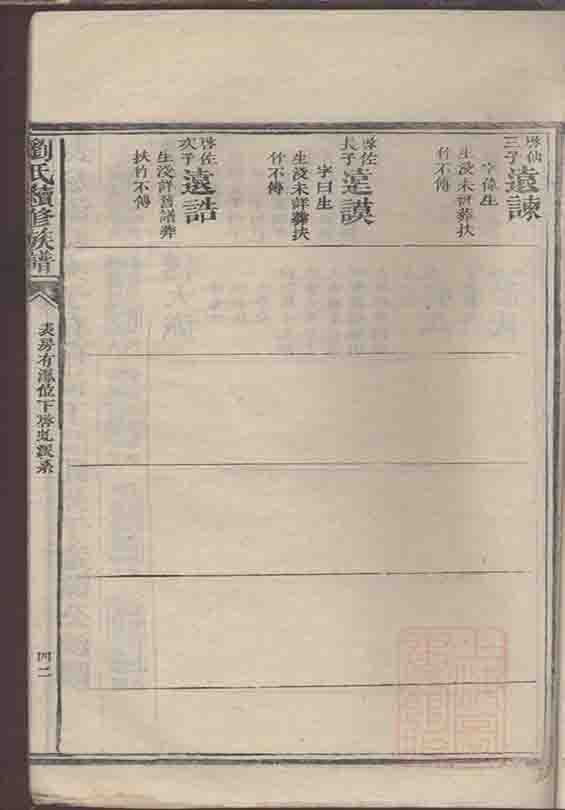 啓仙
三子
遠諫
字偉生
生歿未詳葬扶
竹不傳
啓佐
長子
遠謨
字曰生
生歿未詳葬扶
竹不傳
啓佐
次子
遠誥
生歿詳舊譜葬
扶竹不傳
劉氏續修族譜
房有
位下啓
派系
四二